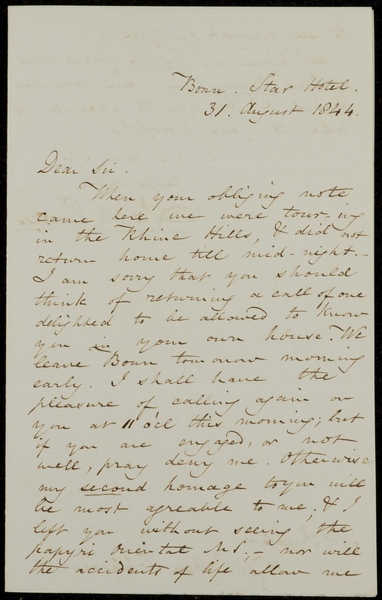 Bonn. Star Hotel.
31. August 1844.
Dear Sir.
When your obliging note
came here we were touring
in the Rhine Hills, & did not
return home till mid-night.-
I am sorry that you should
think of returning a call of one
delighted to be allowed to know
you in your own house. We
leave Bonn tomorrow morning
early. I shall have the
pleasure of calling again on
you at 11 o'cl this morning; but
if you are engaged, or not
well, pray deny me. Otherwise
my second homage to you will
be most agreable to me, & I
left you without seeing the
papyri oriental MS. - nor will
the accidents of life allow me